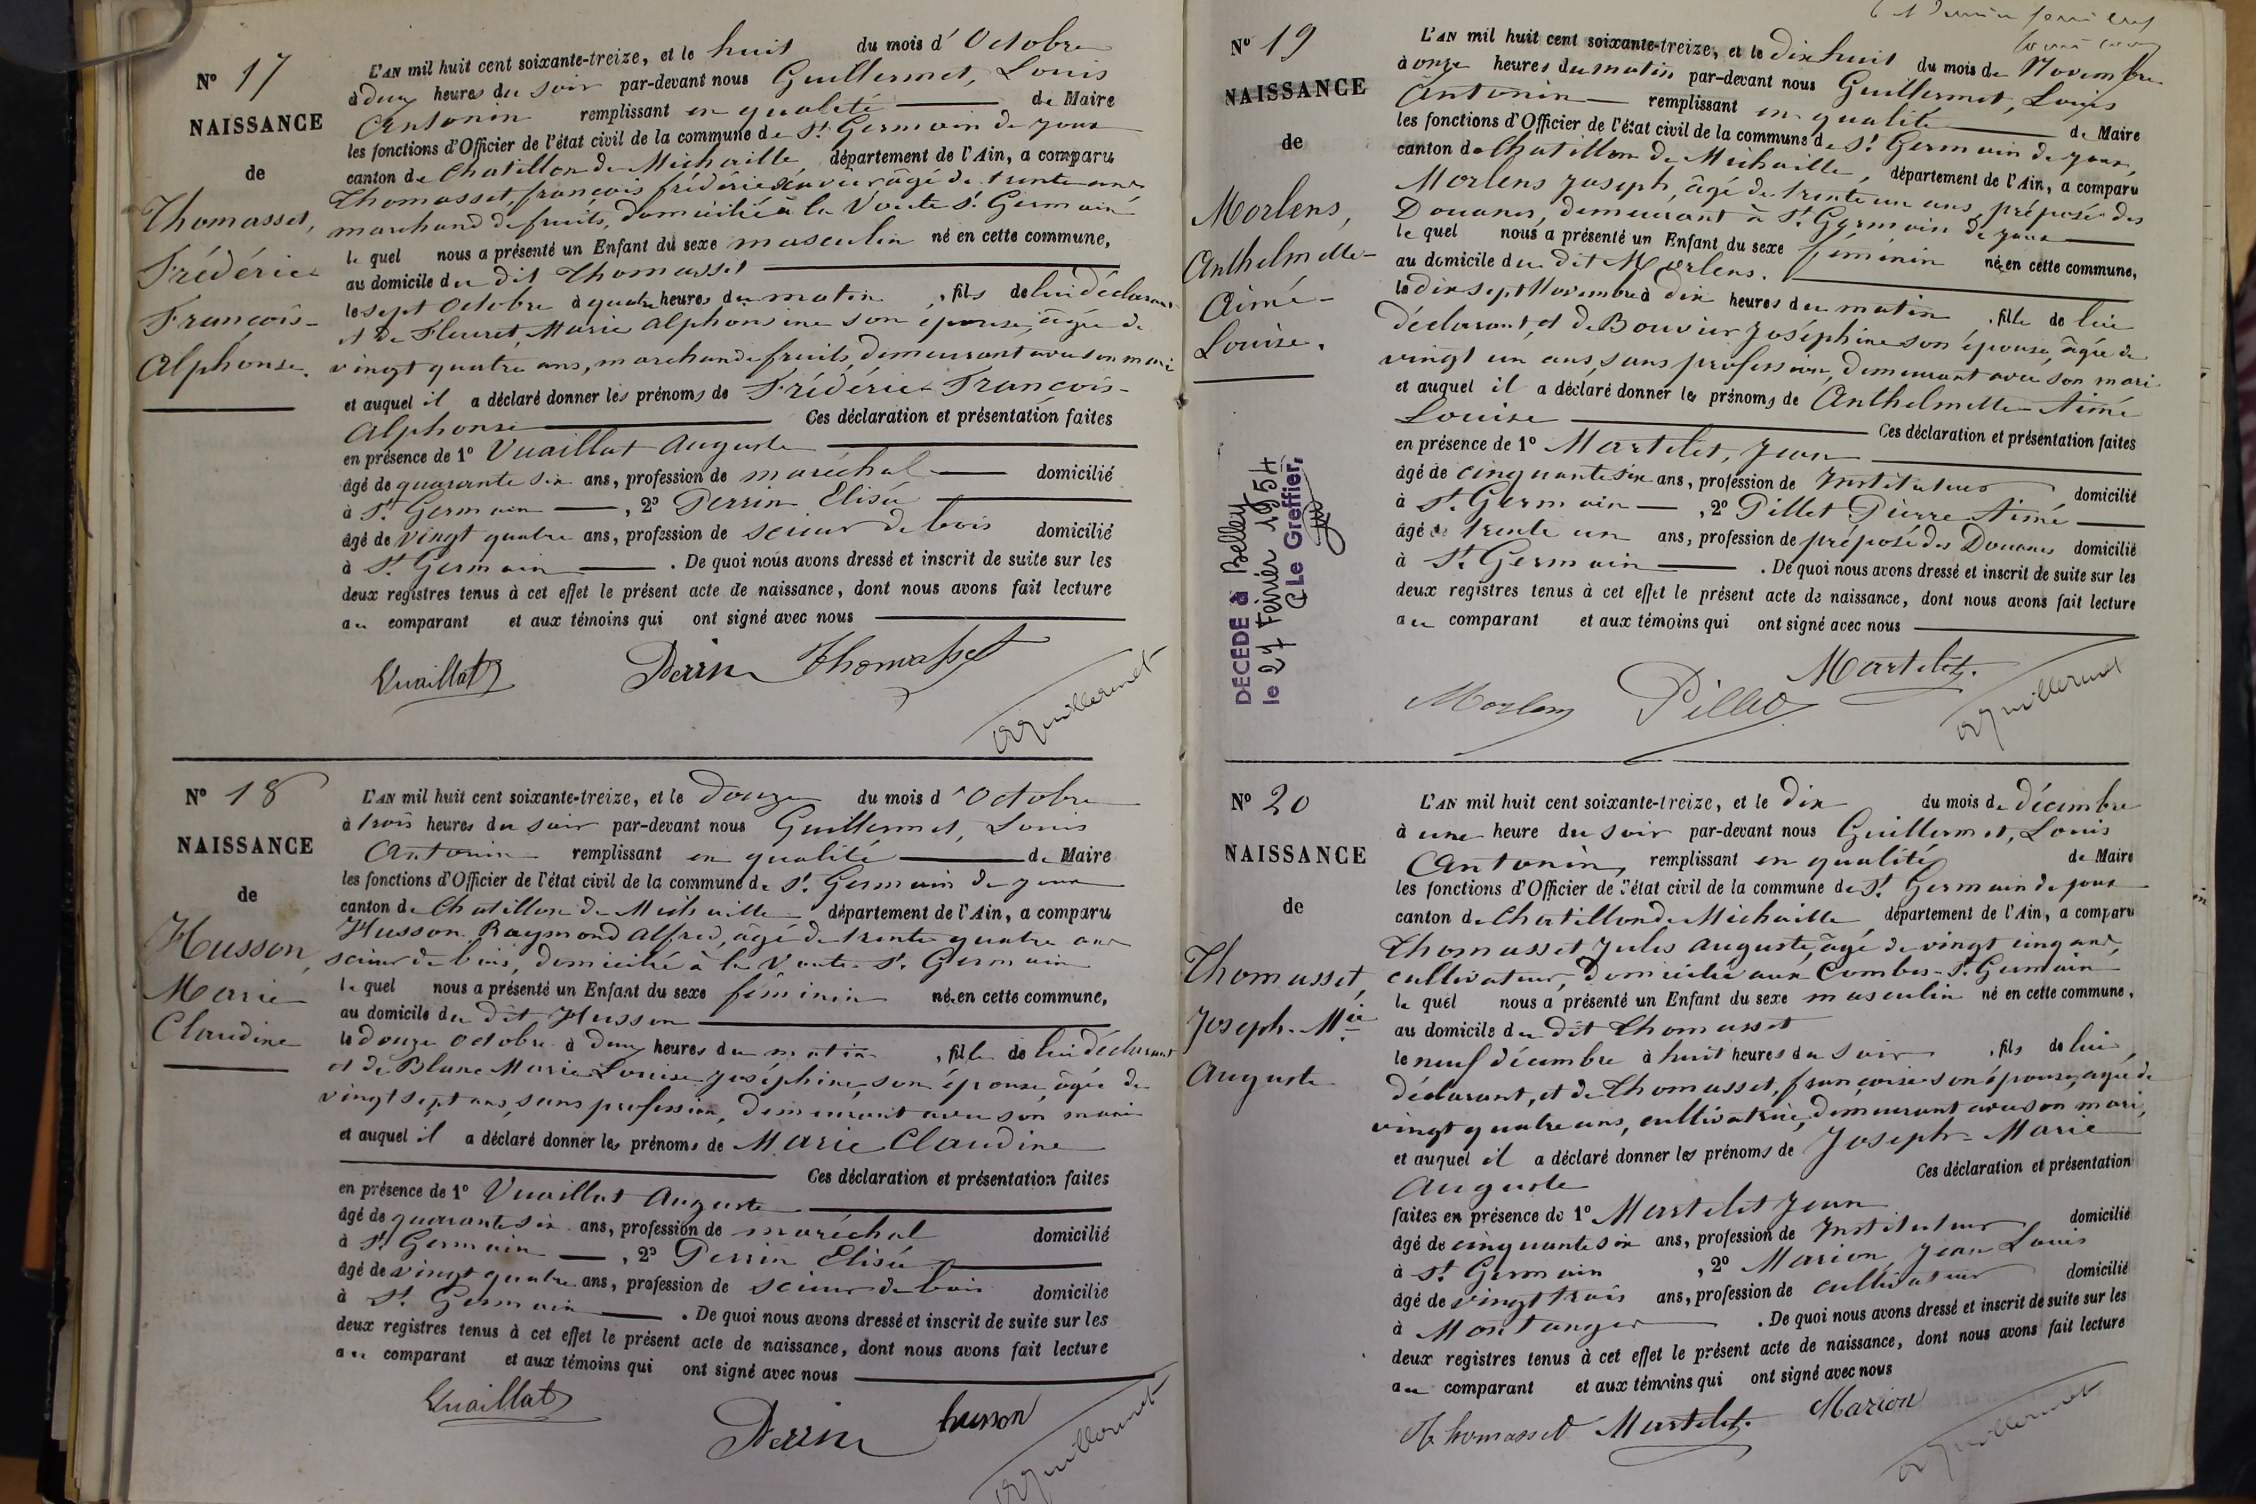 N° 17
NAISSANCE
de
Thomasset,
Frédéric
François-
Alphonse.
L'AN mil huit cent soixante-treize, et le huit du mois d'Octobre
à deux heures du soir par-devant nous Guillermet, Louis
Antonin remplissant en qualité de Maire
les fonctions d'Officier de l'état civil de la commune de St Germain de joux
canton de Chatillon de Michaille département de l'Ain, a comparu
Thomasset, françois frédéric Xavier âgé de trente ans
marchand de fruits, domicilié à la Voute St Germain
le quel nous a présenté un Enfant du sexe masculin né en cette commune,
au domicile du dit Thomasset
le sept Octobre à quatre heures du matin, fils de lui déclarant
et de Fleuret, Marie Alphonsine son épouse, âgée de
vingt quatre ans, marchande fruits, demeurant avec son mari
et auquel il a déclaré donner les prénoms de Frédéric François-
Alphonse Ces déclaration et présentation faites
en présence de 1° Vuaillat Auguste
âgé de quarante six ans, profession de maréchal domicilié
à St Germain, 2° Perrin Elisée
âgé de vingt quatre ans, profession de scieur de bois domicilié
à St Germain. De quoi nous avons dressé et inscrit de suite sur les
deux registres tenus à cet effet le présent acte de naissance, dont nous avons fait lecture
au comparant et aux témoins qui ont signé avec nous
Vuaillat Perrin Thomasset
Guillermet
N° 18
NAISSANCE
de
Husson,
Marie
Claudine
L'AN mil huit cent soixante-treize, et le douze du mois d'Octobre
à trois heures du soir par-devant nous Guillermet, Louis
Antonin remplissant en qualité de Maire
les fonctions d'Officier de l'état civil de la commune de St Germain de joux
canton de Chatillon de Michaille département de l'Ain, a comparu
Husson Raymond Alfred, âgé de trente quatre ans
scieur de bois, domicilié à la Voute St Germain
le quel nous a présenté un Enfant du sexe féminin née en cette commune,
au domicile du dit Husson
le douze Octobre à deux heures du matin, fille de lui déclarant
et de Blanc Marie Louise Joséphine, son épouse, âgée de
vingt sept ans, sans profession, demeurant avec son mari
et auquel il a déclaré donner les prénoms de Marie Claudine
Ces déclaration et présentation faites
en présence de 1° Vuaillat Auguste
âgé de quarante six ans, profession de maréchal domicilié
à St Germain, 2° Perrin Elisée
âgé de vingt quatre ans, profession de scieur de bois domicilié
à St Germain. De quoi nous avons dressé et inscrit de suite sur les
deux registres tenus à cet effet le présent acte de naissance, dont nous avons fait lecture
au comparant et aux témoins qui ont signé avec nous
Vuaillat Perrin husson
Guillermet
N° 19
NAISSANCE
de
Morlens,
Anthelmette-
Aimé-
Louise.
DECEDE à Belley
le 27 Février 1954
Le Greffier,
L'AN mil huit cent soixante-treize, et le dix huit du mois de Novembre
à onze heures du matin par-devant nous Guillermet, Louis
Antonin remplissant en qualité de Maire
les fonctions d'Officier de l'état civil de la commune de St Germain de joux,
canton de Chatillon de Michaille, département de l'Ain, a comparu
Morlens Joseph, âgé de trente un ans, préposé des
Douanes, demeurant à St Germain de joux
le quel nous a présenté un Enfant du sexe féminin née en cette commune,
au domicile du dit Morlens.
le dix sept Novembre à dix heures du matin, fille de lui
déclarant, et de Bouvier Joséphine son épouse, âgée de
vingt un ans, sans profession, demeurant avec son mari
et auquel il a déclaré donner les prénoms de Anthelmette Aimé
Louise Ces déclaration et présentation faites
en présence de 1° Martelet, Jean
âgé de cinquante six ans, profession de Instituteur domicilié
à St Germain, 2° Pillet Pierre Aimé
âgé de trente un ans, profession de préposé des Douanes domicilié
à St Germain. De quoi nous avons dressé et inscrit de suite sur les
deux registres tenus à cet effet le présent acte de naissance, dont nous avons fait lecture
au comparant et aux témoins qui ont signé avec nous
Martelet.
Morlens Pillet Guillermet
N° 20
NAISSANCE
de
Thomasset,
Joseph-Mie
Auguste
L'AN mil huit cent soixante-treize, et le dix du mois de décembre
à une heure du soir par-devant nous Guillermet, Louis
Antonin, remplissant en qualité de Maire
les fonctions d'Officier de l'état civil de la commune de St Germain de joux
canton de Chatillon de Michaille département de l'Ain, a comparu
Thomasset Jules Auguste, âgé de vingt cinq ans,
cultivateur, domicilié aux Combes-St Germain
le quel nous a présenté un Enfant du sexe masculin né en cette commune,
au domicile du dit Thomasset
le neuf décembre à huit heures du soir, fils de lui,
déclarant, et de Thomasset, françoise son épouse, âgée de
vingt quatre ans, cultivatrice, demeurant avec son mari,
et auquel il a déclaré donner les prénoms de Joseph-Marie
Auguste Ces déclaration et présentation
faites en présence de 1° Martelet Jean
âgé de cinquante six ans, profession de Instituteur domicilié
à St Germain, 2° Marion, Jean Louis
âgé de vingt trois ans, profession de cultivateur domicilié
à Montanger. De quoi nous avons dressé et inscrit de suite sur les
deux registres tenus à cet effet le présent acte de naissance, dont nous avons fait lecture
au comparant et aux témoins qui ont signé avec nous
Thomasset Martelet. Marion
Guillermet